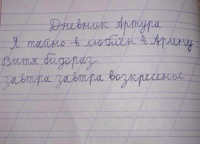 Дневник Артура
Я тайно в люблён в Арину
Витя бидораз
завтра завтра возкресенье